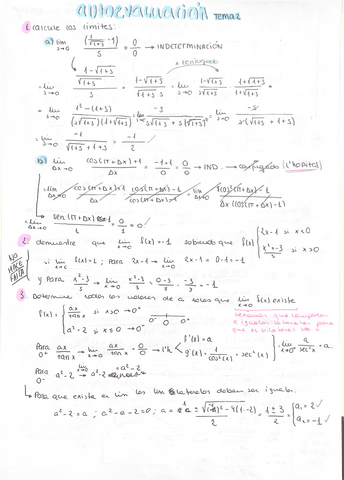 autoevaluación TEMA 2
1. calcule los límites:
a) lim s→0 (1/√(1+s) - 1)/s = 0/0 → INDETERMINACIÓN
x conjugado
= lim s→0 ((1-√(1+s))/√(1+s))/s = (1-√(1+s))/(√(1+s) s) = lim s→0 (1-√(1+s))/(s√(1+s)) · (1+√(1+s))/(1+√(1+s)) =
= lim s→0 (1²-(1+s))/((s√(1+s))(1+√(1+s))) = lim s→0 -s/(s√(1+s) + s(√(1+s))²) = lim s→0 -s/(s(√(1+s) + 1+s))
= lim s→0 -1/(√(1+s)+1+s) = -1/2 ✓
b) lim Δx→0 (cos(π+Δx)+1)/Δx = (-1+1)/0 = 0/0 → IND. → conjugado (L'Hopital)
= lim Δx→0 (cos(π+Δx)+1)/Δx · (cos(π+Δx)-1)/(cos(π+Δx)-1) = lim Δx→0 (cos²(π+Δx)-1)/(Δx (cos(π+Δx)-1))
= lim Δx→0 sen(π+Δx)/1 = 0/1 = 0 ✓
2. demuestre que lim x→0 f(x) = -1 sabiendo que f(x) { 2x-1 si x<0
(x²-3)/3 si x>0
NO HACE FALTA
si lim x→c f(x) = L; Para 2x-1 → lim x→0 2x-1 = 0-1 = -1
y Para (x²-3)/3 → lim x→0 (x²-3)/3 = (0-3)/3 = -3/3 = -1
3. Determine todos los valores de a tales que lim x→0 f(x) existe
f(x) = { ax/tan x si x>0 → 0⁺
a²-2 si x≤0 → 0⁻
Para 0⁺ ax/tan x → lim x→0 ax/tan x = 0/0 → l'H { f'(x) = a
g'(x) = 1/cos²(x) = sec²(x)
lim x→0⁺ a/sec²x = a.
Para 0⁻ a²-2 → lim a²-2 = a²-2
↳ Para que exista el lim los lim bilaterales deben ser iguales.
a²-2=a ; a²-a-2=0; a = (1 ± √((-1)²-4(1·-2)))/2 = (1±3)/2 = { a₁ = 2 ✓
a₂ = -1 ✓